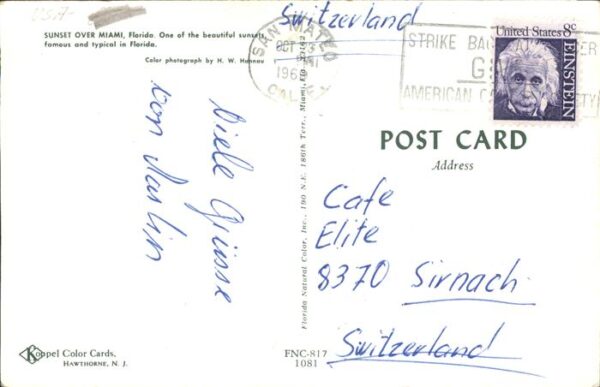 USA
Switzerland
SUNSET OVER MIAMI, Florida. One of the beautiful sunsets,
famous and typical in Florida.
Color photograph by H. W. Hannau
SAN MATEO
OCT
196
CALIF
STRIKE BACK AT
AMERICAN
United States 8c
EINSTEIN
Viele Grüsse
von
POST CARD
Address
Cafe
Elite
8370 Sirnach
Switzerland
Florida Natural Color, Inc., 190 N.E. 186th Terr., Miami, Fla. 33162
Koppel Color Cards,
HAWTHORNE, N. J.
FNC-817
1081